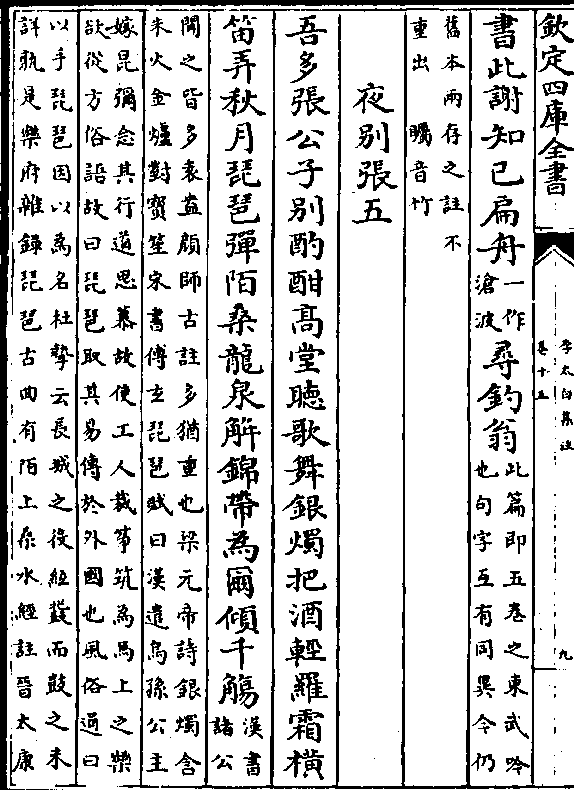 欽定四庫全書
李太白集注
卷十五
九
書此謝知已扁舟一作滄波尋釣翁此篇即五卷之東武吟也句字互有同異今仍
舊本兩存之註不
重出 矚音竹
夜别張五
吾多張公子别酌酣髙堂聽歌舞銀燭把酒輕羅霜横
笛弄秋月琵琶彈陌桑龍泉解錦帶為爾傾千觴漢書諸公
聞之皆多袁盎顔師古註多猶重也梁元帝詩銀燭含
朱火金爐對寳笙宋書傅玄琵琶賦曰漢遣烏孫公主
嫁昆彌念其行道思慕故使工人裁筝筑為馬上之樂
欲從方俗語故曰琵琶取其易傳於外國也風俗通曰
以手琵琶因以為名杜摯云長城之役絃鼗而鼓之未
詳孰是樂府雜録琵琶古曲有陌上桑水經註晉太康